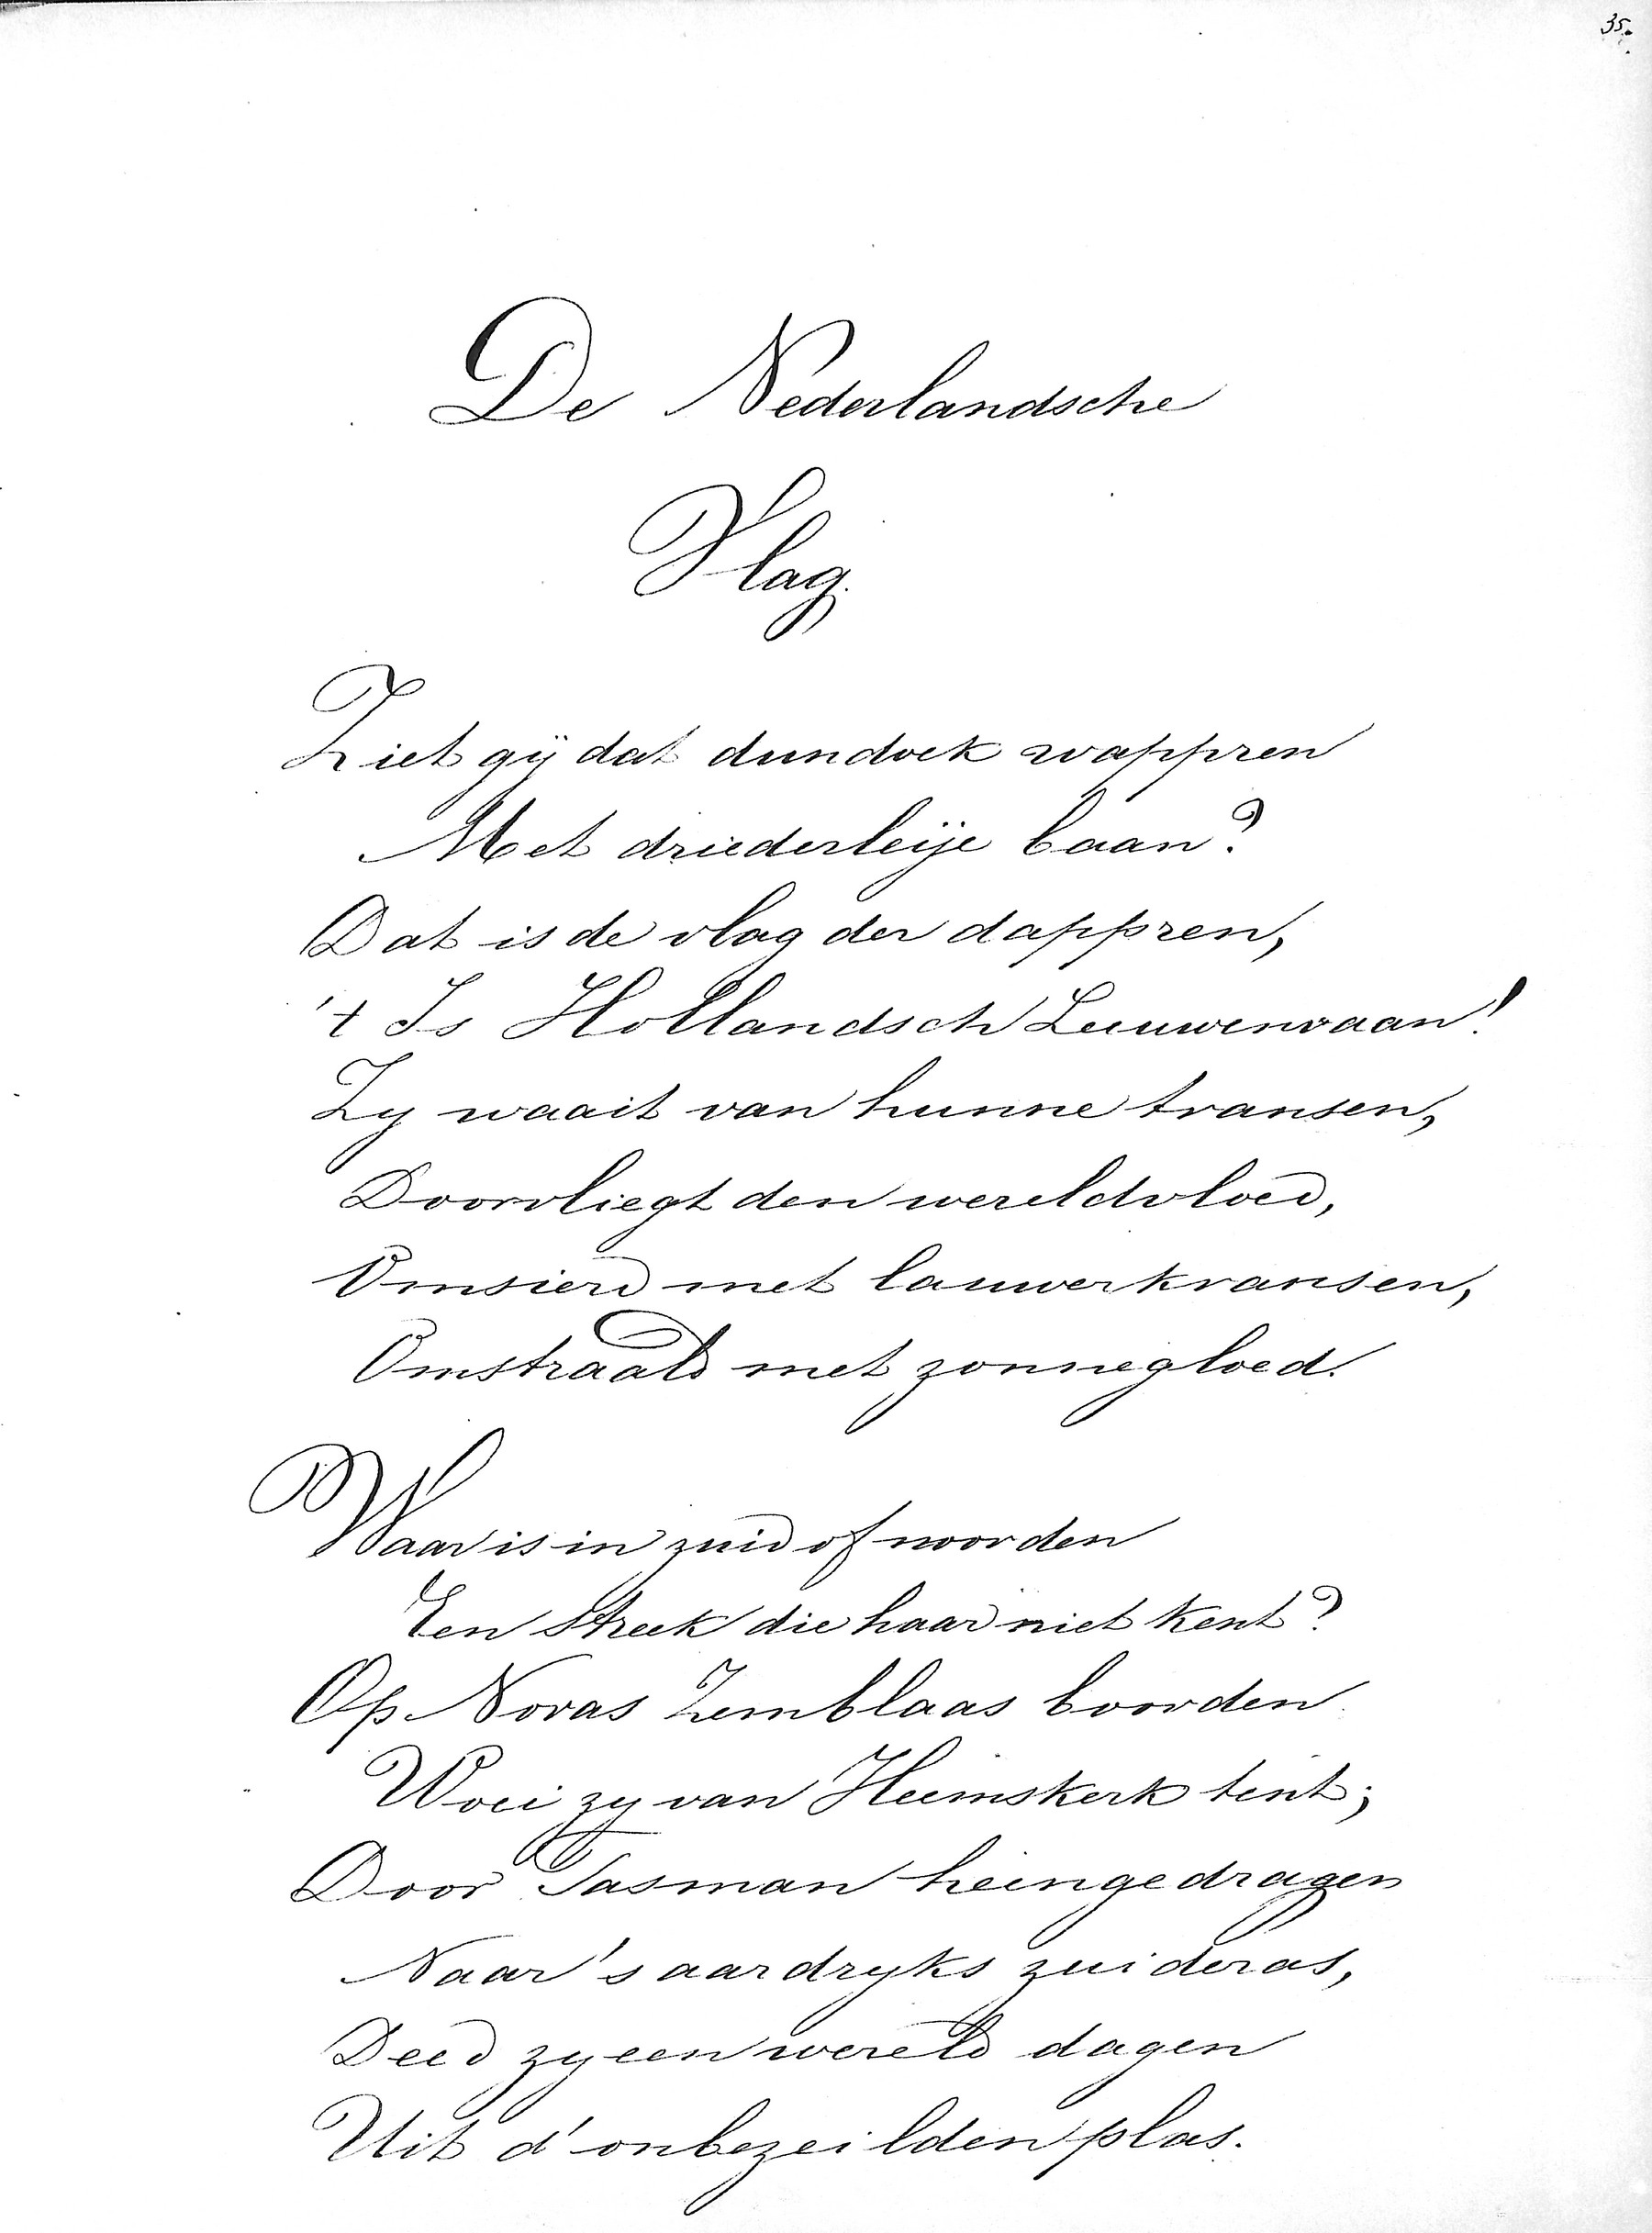 35.
De Nederlandsche
Vlag.
Ziet gij dat dundoek wappren
Met driederleije baan?
Dat is de vlag der dappren,
't Is Hollandsch Leeuwenvaan!
Zy waait van hunne transen,
Doorvliegt den wereldvloed,
Omsierd met lauwerkransen,
Omstraald met zonnegloed.
Waar is in zuid of noorden
Een streek die haar niet kent?
Op Novas Zemblaas boorden
Woei zy van Heemskerk tent;
Door Tasman heengedragen
Naar 's aardryks zuideras,
Deed zy een wereld dagen
Uit d' onbezeilden plas.